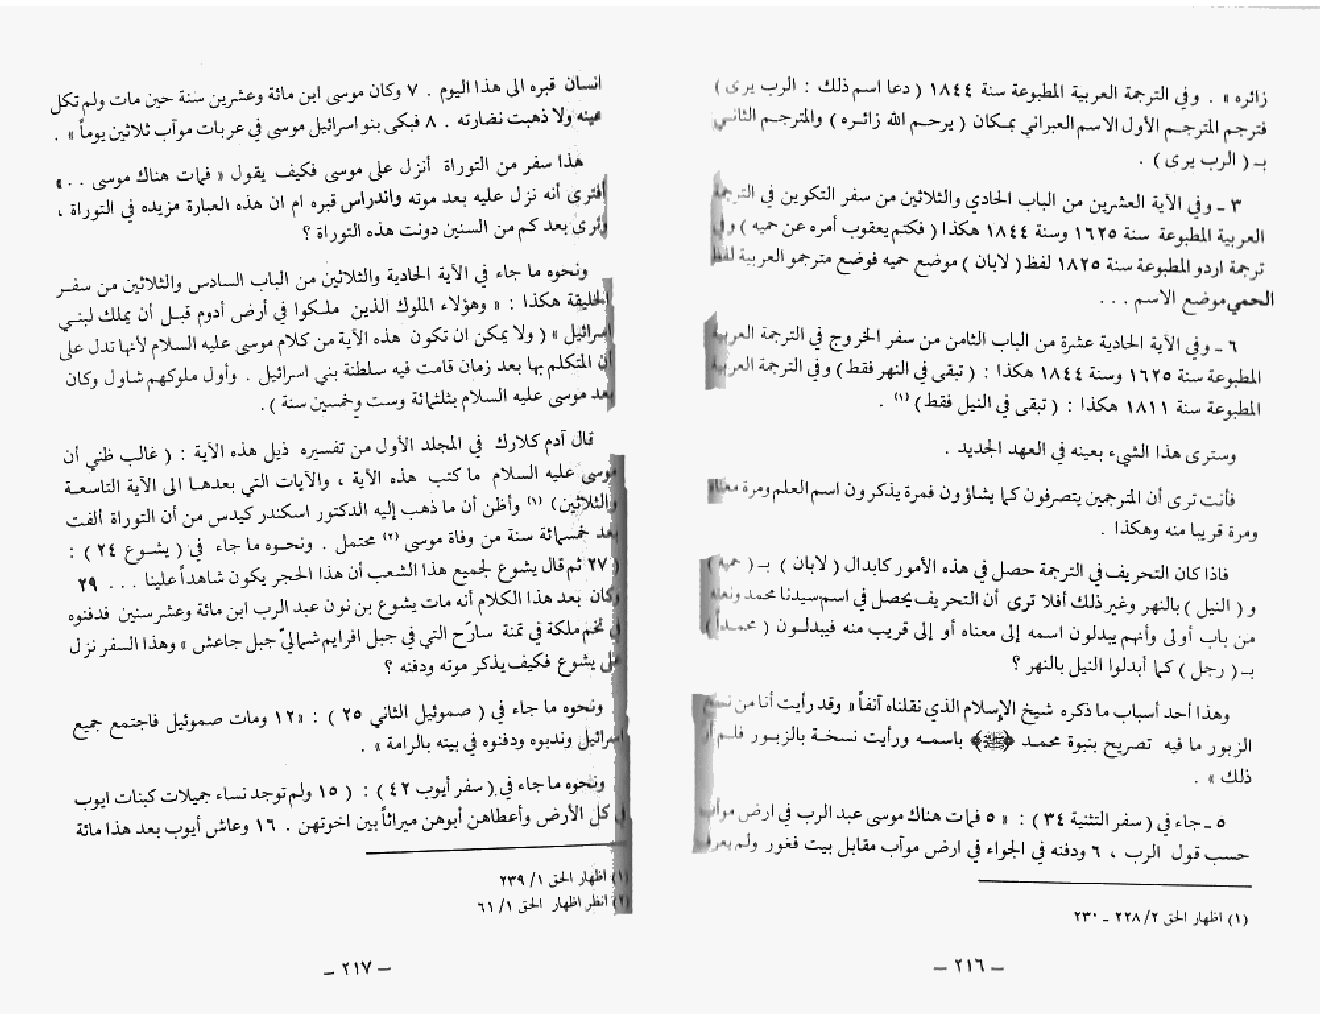 زائره » . وفي الترجمة العربية المطبوعة سنة ١٨٤٤ ( دعا اسم ذلك : الرب يرى )
فترجم المترجم الأول الاسم العبراني بمكان ( يرحم الله زائره ) والمترجم الثاني
بـ ( الرب يرى ) .
٣ ـ وفي الآية العشرين من الباب الحادي والثلاثين من سفر التكوين في الترجمة
العربية المطبوعة سنة ١٦٢٥ وسنة ١٨٤٤ هكذا ( فكتم يعقوب أمره عن حميه ) وفي
ترجمة اردو المطبوعة سنة ١٨٢٥ لفظ ( لابان ) موضع حميه فوضع مترجمو العربية لفظ
الحمي موضع الاسم . . .
٦ ـ وفي الآية الحادية عشرة من الباب الثامن من سفر الخروج في الترجمة العربية
المطبوعة سنة ١٦٢٥ وسنة ١٨٤٤ هكذا : ( تبقى في النهر فقط ) وفي الترجمة العربية
المطبوعة سنة ١٨١١ هكذا : ( تبقى في النيل فقط ) (١) .
وسترى هذا الشيء بعينه في العهد الجديد .
فأنت ترى أن المترجمين يتصرفون كما يشاؤون فمرة يذكرون اسم العلم ومرة معناه
ومرة قريبا منه وهكذا .
فاذا كان التحريف في الترجمة حصل في هذه الأمور كابدال ( لابان ) بـ ( حميه )
و ( النيل ) بالنهر وغير ذلك أفلا ترى أن التحريف يحصل في اسم سيدنا محمد ونعته
من باب أولى وأنهم يبدلون اسمه إلى معناه أو إلى قريب منه فيبدلون ( محمداً )
بـ ( رجل ) كما أبدلوا النيل بالنهر ؟
وهذا أحد أسباب ما ذكره شيخ الإسلام الذي نقلناه آنفاً « وقد رأيت أنا من نسخ
الزبور ما فيه تصريح بنبوة محمد ﷺ باسمه ورأيت نسخة بالزبور فلم أر
ذلك » .
٥ ـ جاء في ( سفر التثنية ٣٤ ) : « ٥ فمات هناك موسى عبد الرب في ارض موآب
حسب قول الرب ، ٦ ودفنه في الجواء في ارض موآب مقابل بيت فغور ولم يعرف
(١) اظهار الحق ٢/ ٢٢٨ ـ ٢٣٠
ـ ٢١٦ ـ
انسان قبره الى هذا اليوم . ٧ وكان موسى ابن مائة وعشرين سنة حين مات ولم تكل
عينه ولا ذهبت نضارته . ٨ فبكى بنو اسرائيل موسى في عربات موآب ثلاثين يوماً » .
هذا سفر من التوراة أنزل على موسى فكيف يقول « فمات هناك موسى . . »
أفترى أنه نزل عليه بعد موته واندراس قبره ام ان هذه العبارة مزيده في التوراة ،
وترى بعد كم من السنين دونت هذه التوراة ؟
ونحوه ما جاء في الآية الحادية والثلاثين من الباب السادس والثلاثين من سفر
الخليقة هكذا : « وهؤلاء الملوك الذين ملكوا في أرض أدوم قبل أن يملك لبني
اسرائيل » ( ولا يمكن ان تكون هذه الآية من كلام موسى عليه السلام لأنها تدل على
أن المتكلم بها بعد زمان قامت فيه سلطنة بني اسرائيل . وأول ملوكهم شاول وكان
بعد موسى عليه السلام بثلثمائة وست وخمسين سنة ) .
قال آدم كلارك في المجلد الأول من تفسيره ذيل هذه الآية : ( غالب ظني أن
موسى عليه السلام ما كتب هذه الآية ، والآيات التي بعدها الى الآية التاسعة
والثلاثين ) (١) وأظن أن ما ذهب إليه الدكتور اسكندر كيدس من أن التوراة ألفت
بعد خمسمائة سنة من وفاة موسى (٢) محتمل . ونحوه ما جاء في ( يشوع ٢٤ ) :
( ٢٧ ثم قال يشوع لجميع هذا الشعب أن هذا الحجر يكون شاهداً علينا . . . ٢٩
وكان بعد هذا الكلام أنه مات يشوع بن نون عبد الرب ابن مائة وعشر سنين فدفنوه
في تخم ملكة في تمنة سارَح التي في جبل افرايم شماليّ جبل جاعش » وهذا السفر نزل
على يشوع فكيف يذكر موته ودفنه ؟
ونحوه ما جاء في ( صموئيل الثاني ٢٥ ) : « ١٢ ومات صموئيل فاجتمع جميع
اسرائيل وندبوه ودفنوه في بيته بالرامة » .
ونحوه ما جاء في ( سفر أيوب ٤٢ ) : ( ١٥ ولم توجد نساء جميلات كبنات ايوب
في كل الأرض وأعطاهن أبوهن ميراثاً بين اخوتهن . ١٦ وعاش أيوب بعد هذا مائة
(١) اظهار الحق ١/ ٢٣٩
(٢) انظر اظهار الحق ١/ ٦١
ـ ٢١٧ ـ